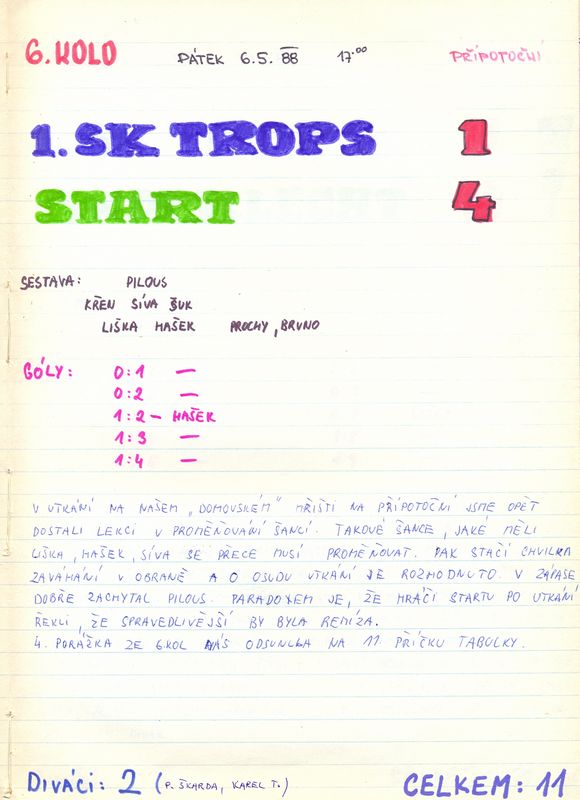 6. KOLO PÁTEK 6.5. 88 17.00 PŘÍPOTOČNÍ
1. SK TROPS 1
START 4
SESTAVA: PILOUS
KŘEN SÍVA ŠUK
LIŠKA HAŠEK PROCHY, BRUNO
GÓLY: 0:1 —
0:2 —
1:2 — HAŠEK
1:3 —
1:4 —
V UTKÁNÍ NA NAŠEM „DOMOVSKÉM" HŘIŠTI NA PŘÍPOTOČNÍ JSME OPĚT
DOSTALI LEKCI V PROMĚŇOVÁNÍ ŠANCÍ. TAKOVÉ ŠANCE, JAKÉ MĚLI
LIŠKA, HAŠEK, SÍVA SE PŘECE MUSÍ PROMĚŇOVAT. PAK STAČÍ CHVILKA
ZAVÁHÁNÍ V OBRANĚ A O OSUDU UTKÁNÍ JE ROZHODNUTO. V ZÁPASE
DOBŘE ZACHYTAL PILOUS. PARADOXEM JE, ŽE HRÁČI STARTU PO UTKÁNÍ
ŘEKLI, ŽE SPRAVEDLIVĚJŠÍ BY BYLA REMÍZA.
4. PORÁŽKA ZE 6 KOL NÁS ODSUNULA NA 11. PŘÍČKU TABULKY.
DIVÁCI: 2 (P. ŠKARDA, KAREL T.) CELKEM: 11